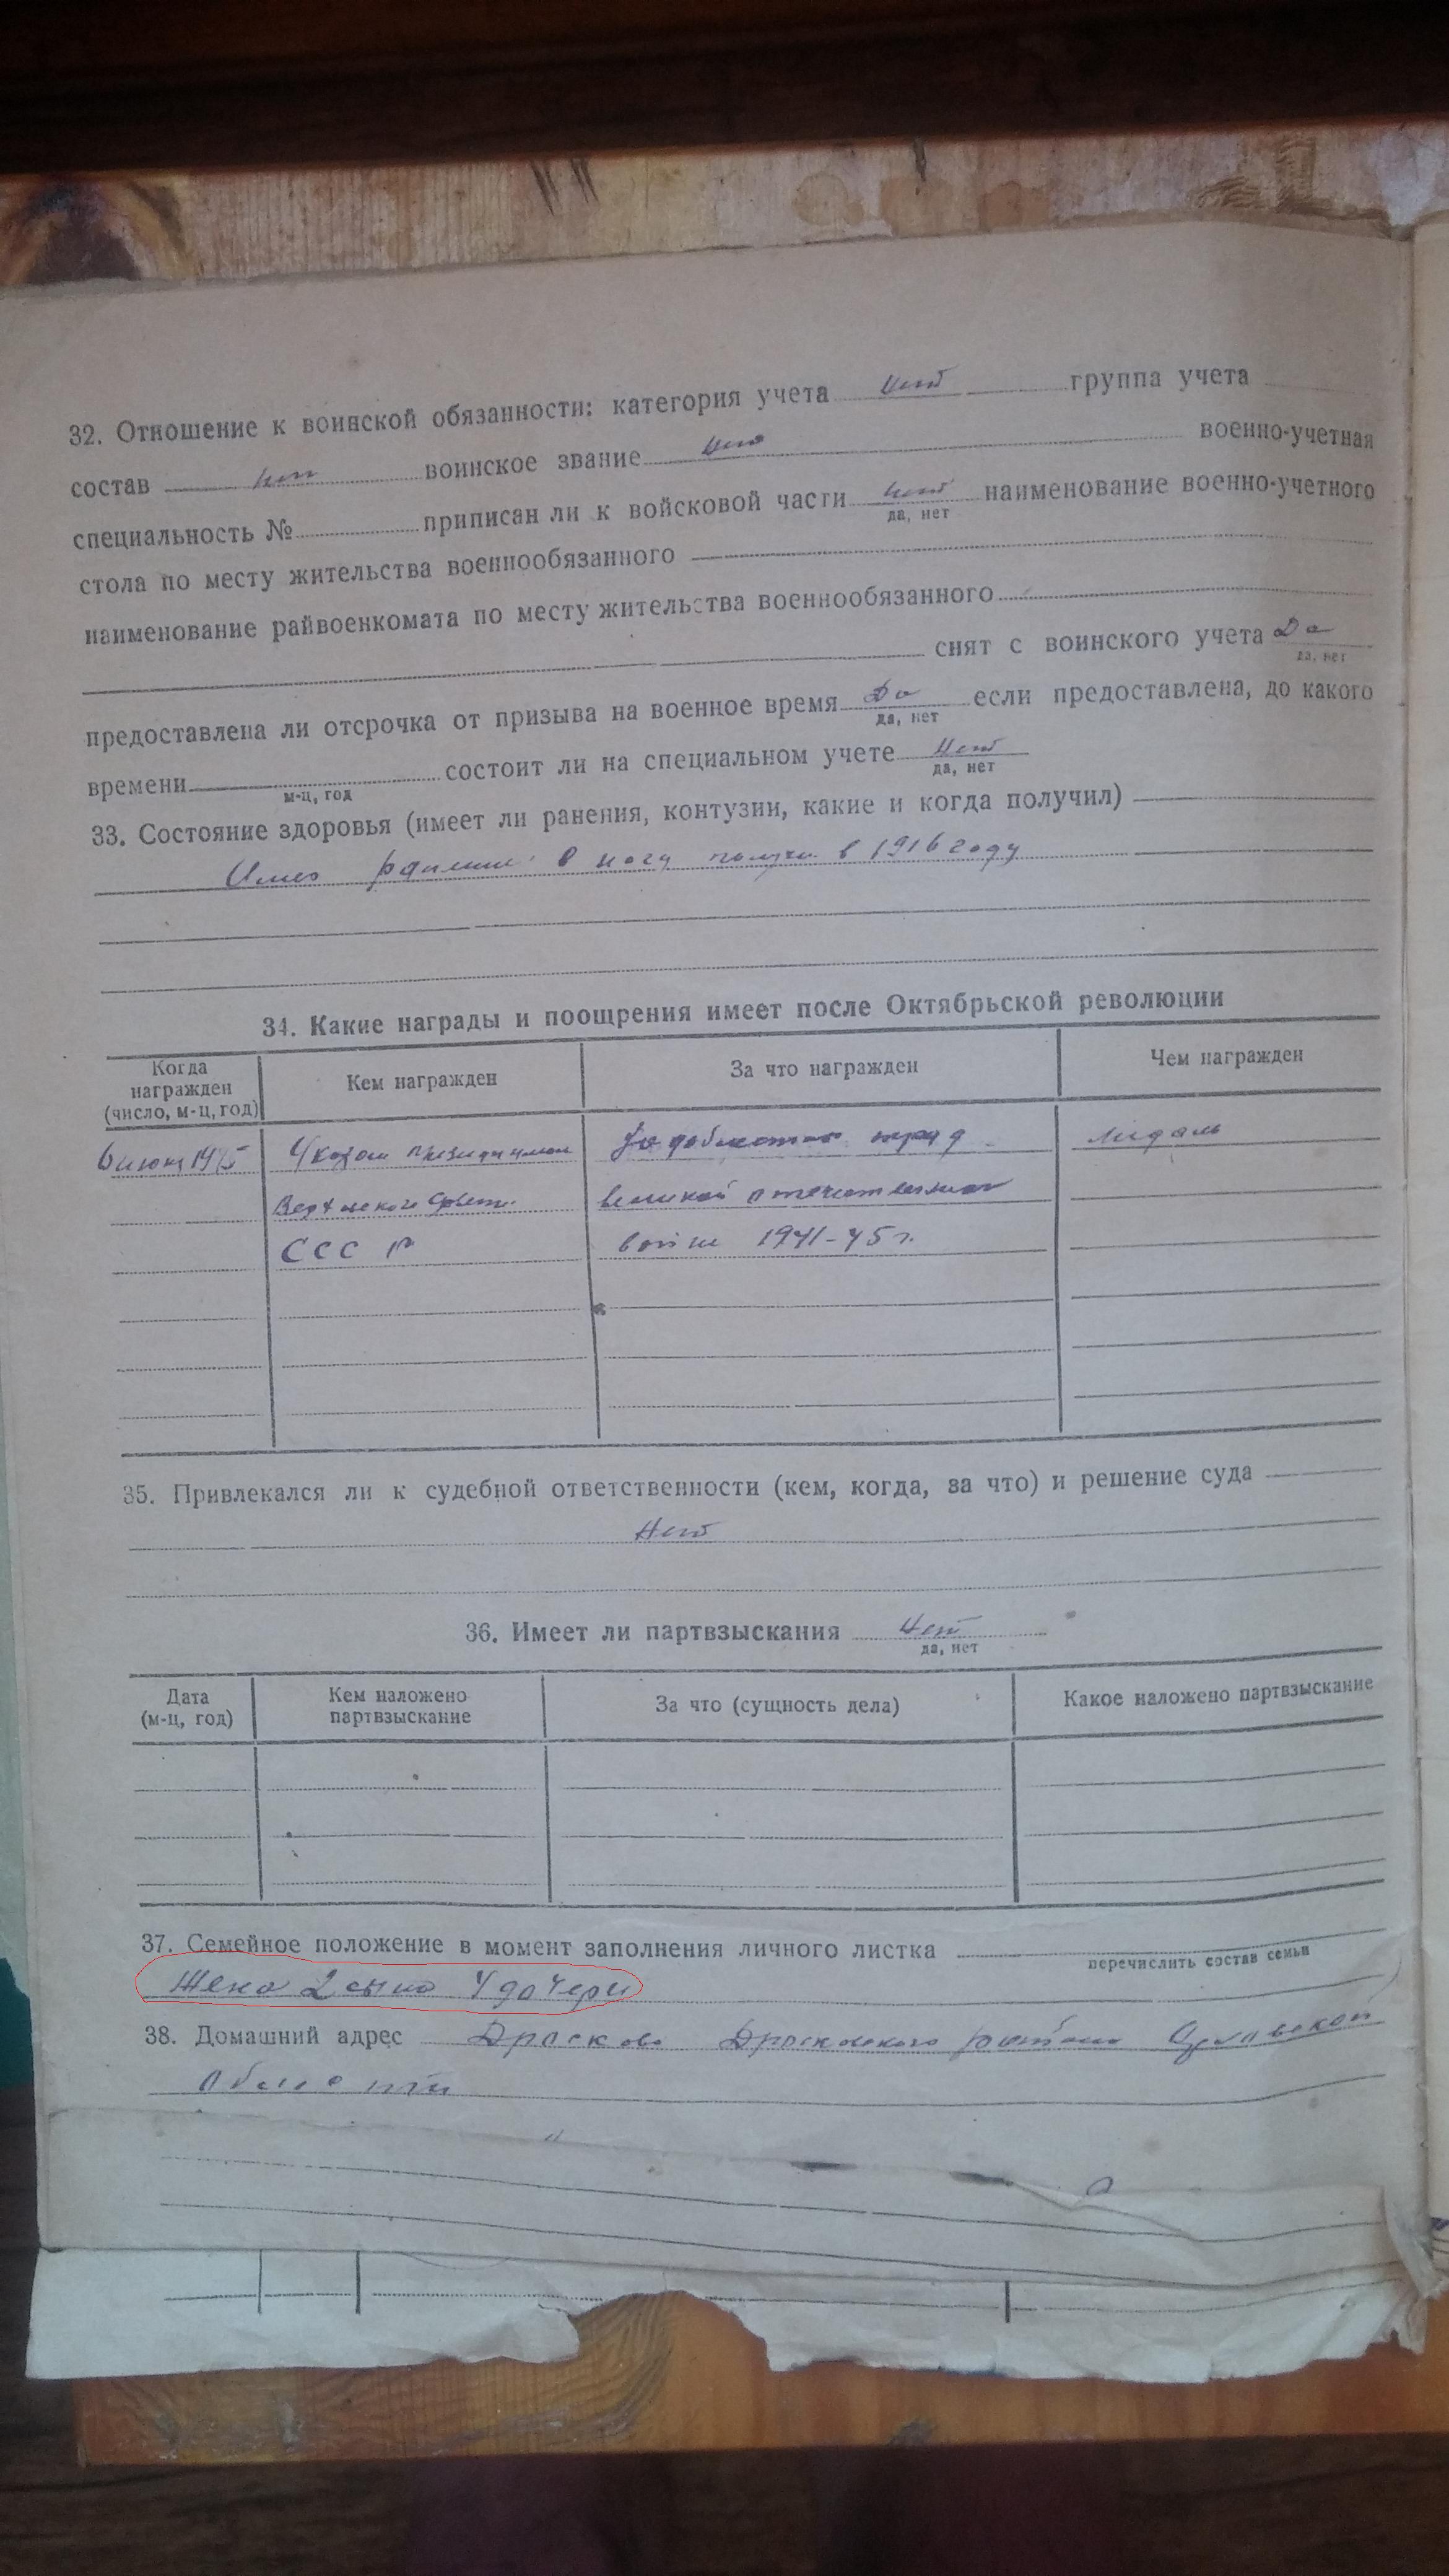 32. Отношение к воинской обязанности: категория учета нет группа учета
состав нет воинское звание нет военно-учетная
специальность № приписан ли к войсковой части нет наименование военно-учетного
да, нет
стола по месту жительства военнообязанного
наименование райвоенкомата по месту жительства военнообязанного
снят с воинского учета Да
да, нет
предоставлена ли отсрочка от призыва на военное время Да если предоставлена, до какого
да, нет
времени состоит ли на специальном учете Нет
м-ц, год да, нет
33. Состояние здоровья (имеет ли ранения, контузии, какие и когда получил)
в ногу в 1916 году
34. Какие награды и поощрения имеет после Октябрьской революции
Когда награжден (число, м-ц, год) Кем награжден За что награжден Чем награжден
6 Указом Президиума За труд медаль
Верховного Совета великой отечественной
СССР войне 1941-45 г.
35. Привлекался ли к судебной ответственности (кем, когда, за что) и решение суда
Нет
36. Имеет ли партвзыскания Нет
да, нет
Дата (м-ц, год) Кем наложено партвзыскание За что (сущность дела) Какое наложено партвзыскание
37. Семейное положение в момент заполнения личного листка
перечислить состав семьи
Жена 2 сына 4 дочери
38. Домашний адрес Дросково Дросковского района Орловской
области